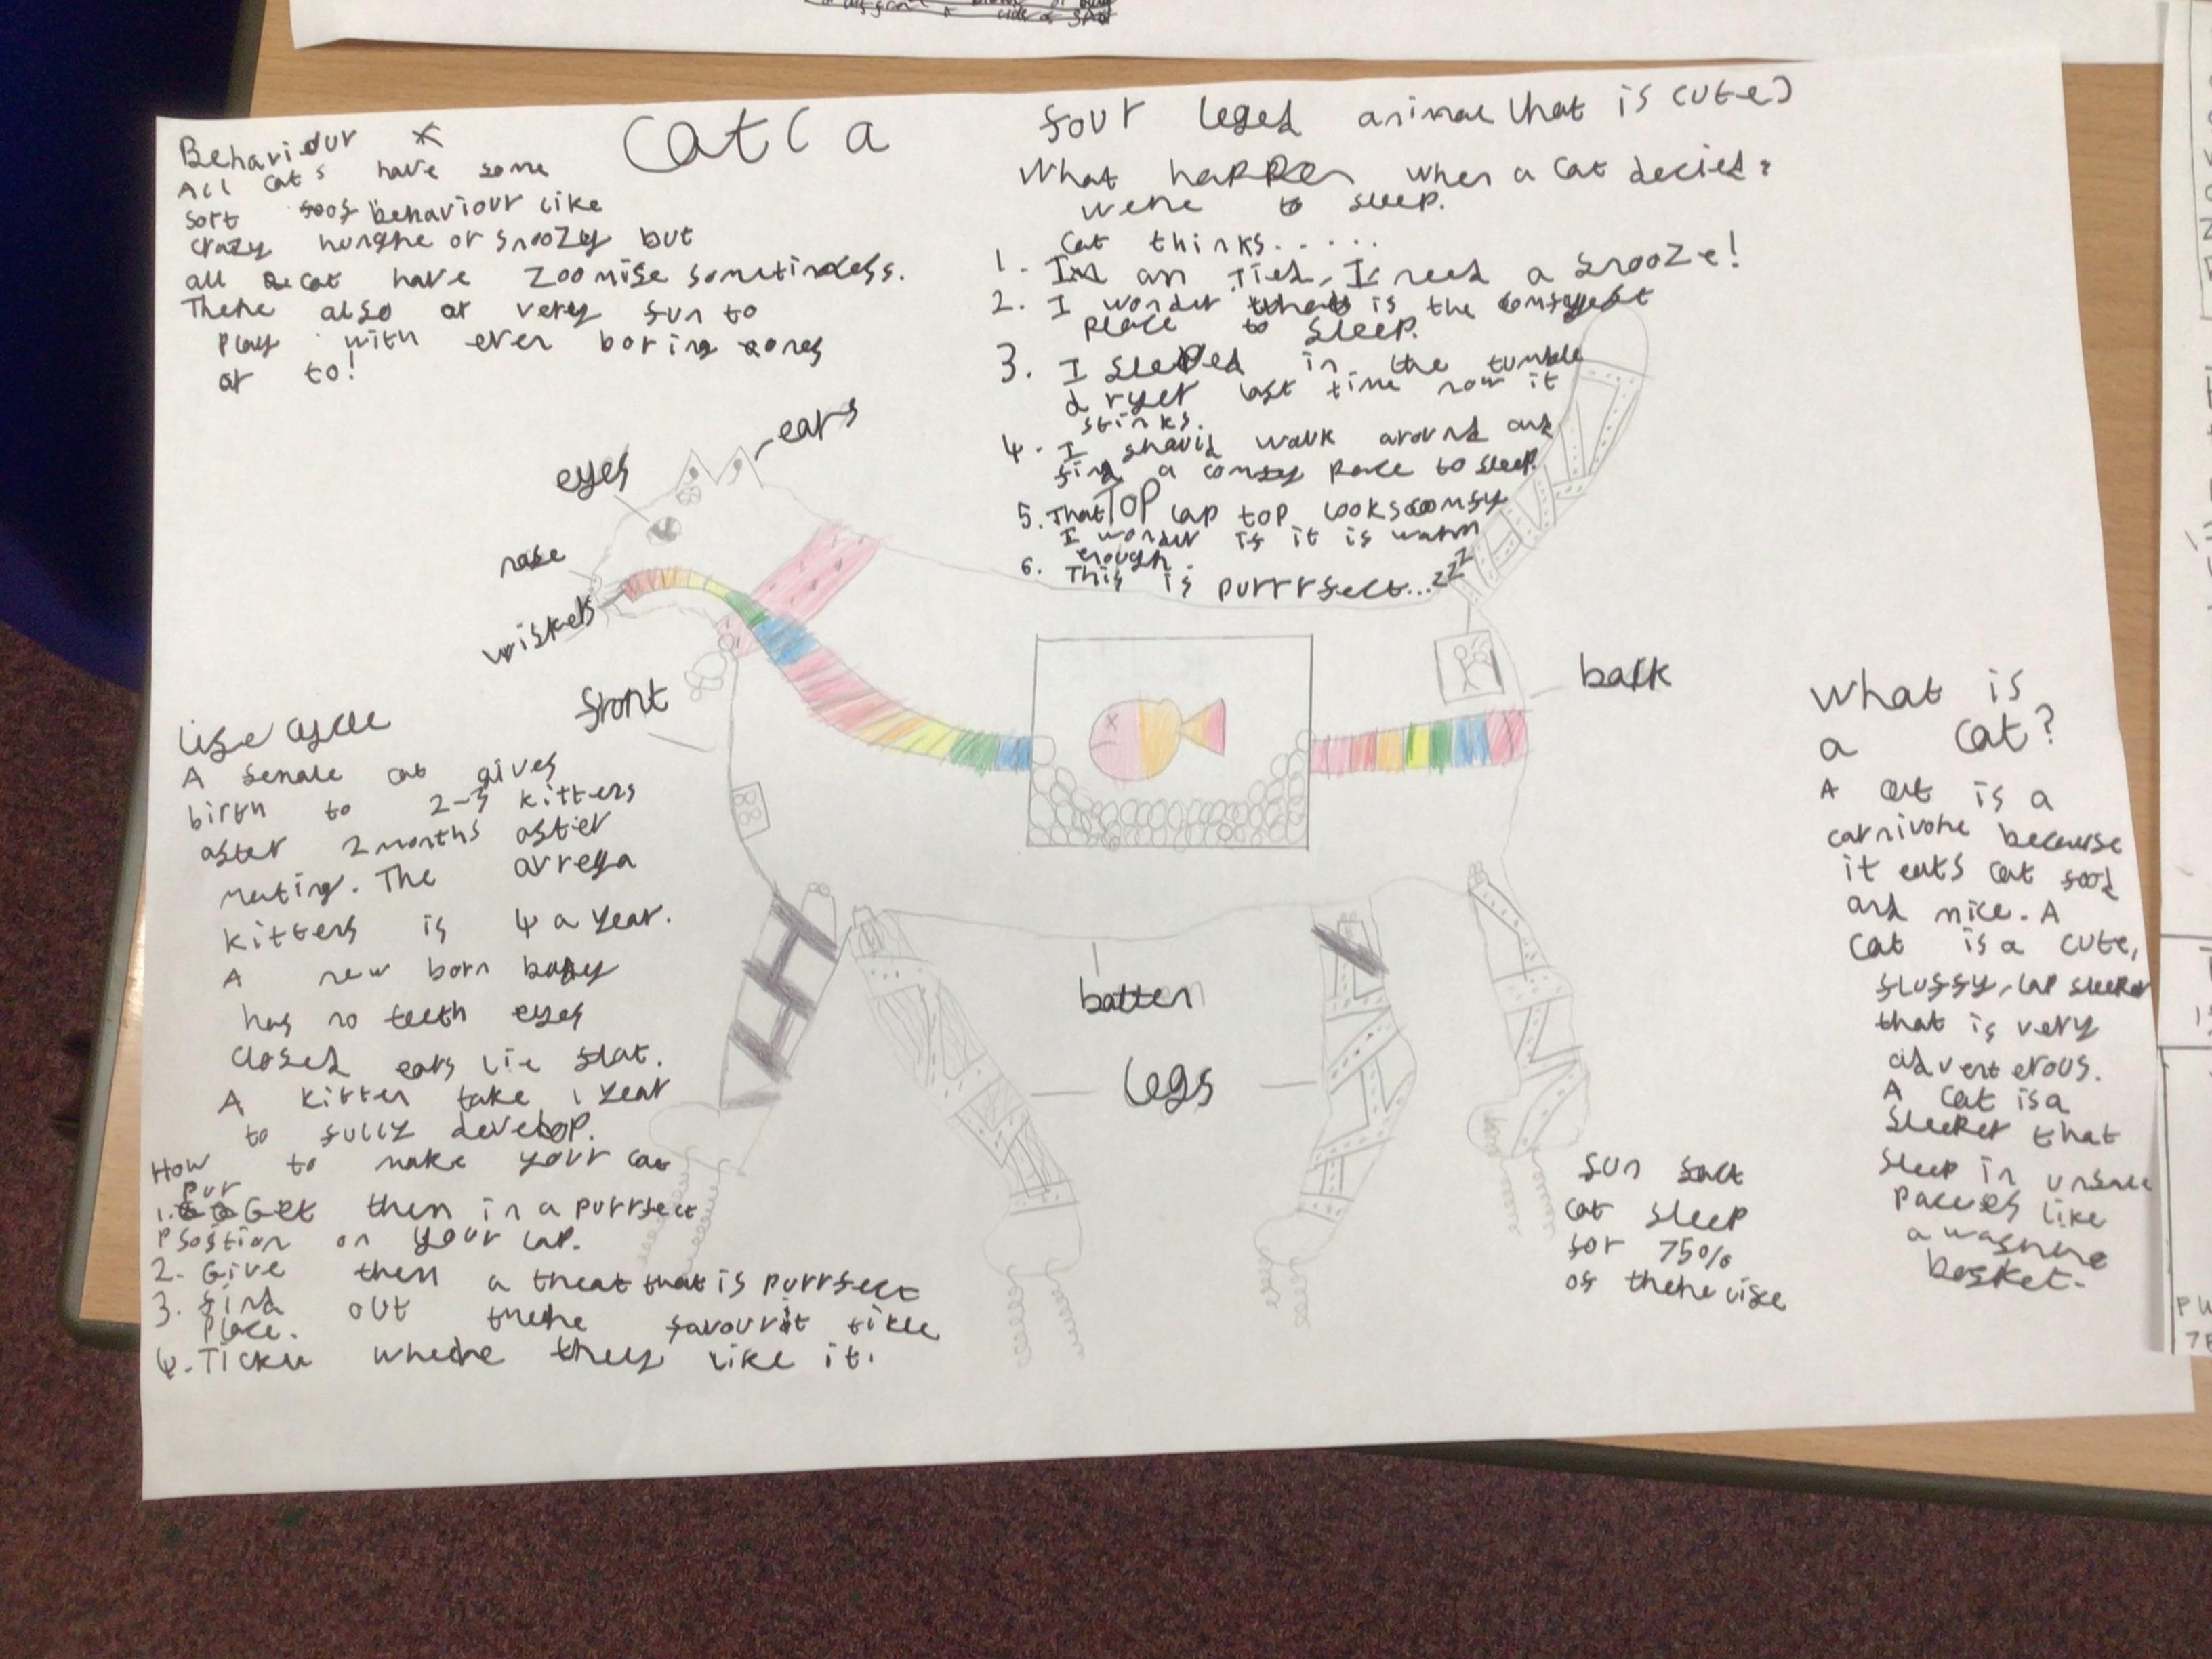 Cat ( a four leged animal that is cute)
Behaviour
All cat's have some
sort behaviour like
crazy hunghe or snoozy but
all cat have zoomise
There also ar very fun to
play with even boring
ar to!
What happen when a cat decied
were to sleep.
Cat thinks.....
1. am Tied, I need a snooze!
2. I wonder is the
place to sleep.
3. I sleeped in the tumble
dryer last time now it
stinks.
4. I should walk around and
find a comfy place to sleep.
5. That TOP lap top looks comfy
I wonder if it is warm
enough.
6. This is purrrfect...zzz
ears
eyes
nose
wiskers
front
back
batten
legs
Life cycle
A female cat gives
birth to kittens
after 2 months after
mating. The
kittens is 4 a year.
A new born baby
has no teeth eyes
closed ears lie flat.
A kitten take 1 year
to fully develop.
How to make your cat
pur
1. Get them in a purrfect
psostion on your lap.
2. Give them a treat that is purrfect
3. find out there favourit
place.
4. Tickle where they like it.
What is
a cat?
A cat is a
carnivore because
it eats cat food
and mice. A
cat is a cute,
fluffy, lap sleeper
that is very
adventerous.
A cat is a
sleeper that
sleep in
like
a
basket.
fun fact
cat sleep
for 75%
of there life